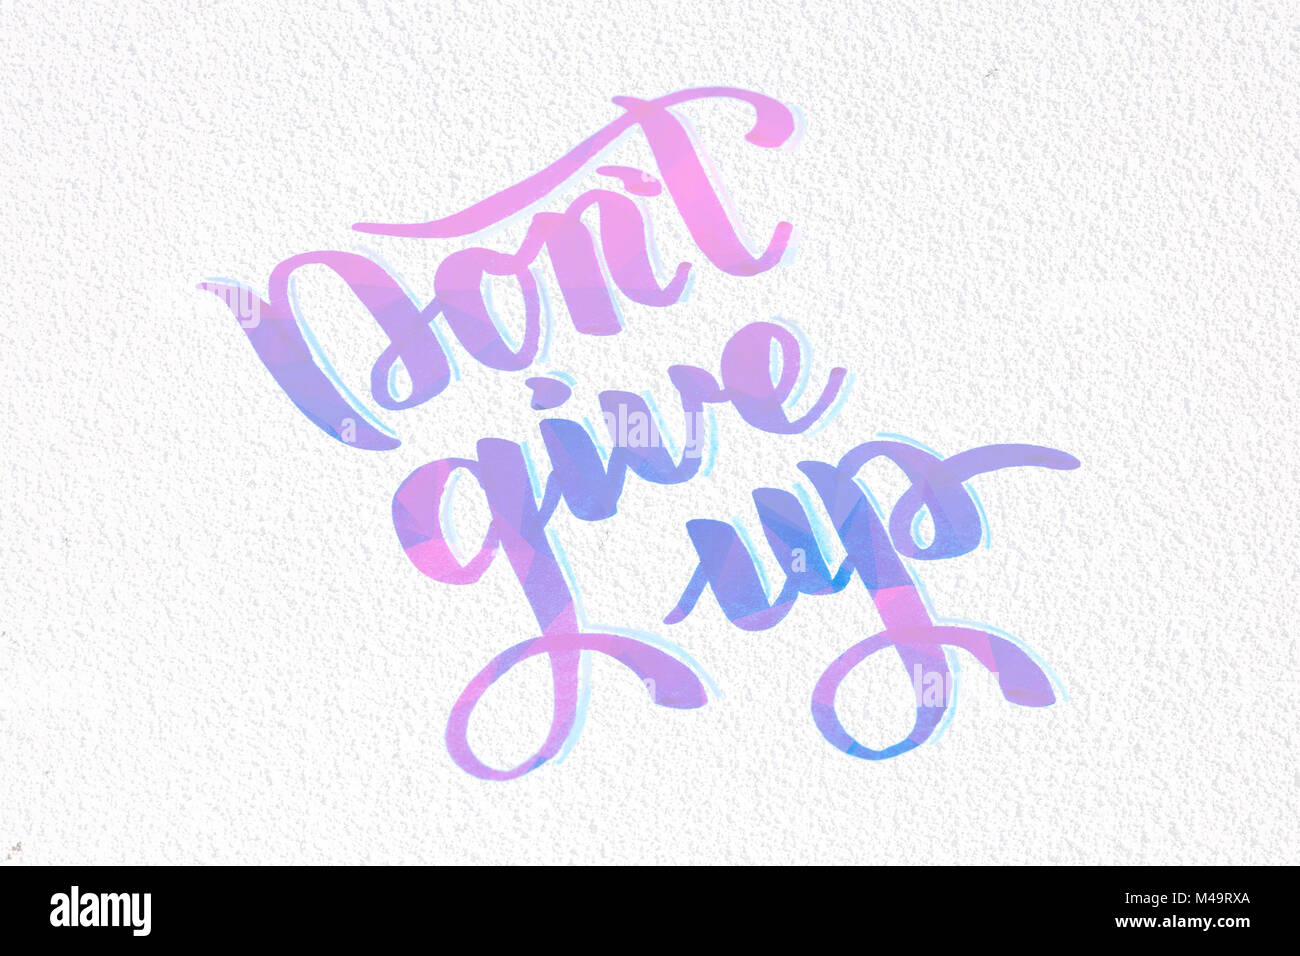 Don't
give
up
alamy
Image ID: M49RXA
www.alamy.com